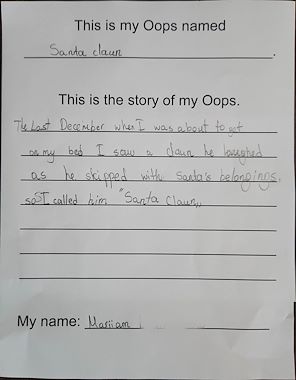 This is my Oops named
Santa claun.
This is the story of my Oops.
The Last December when I was about to get
on my bed I saw a claun he laughed
as he skipped with Santa's belongings.
so I called him "Santa Claun„
My name: Mariiam